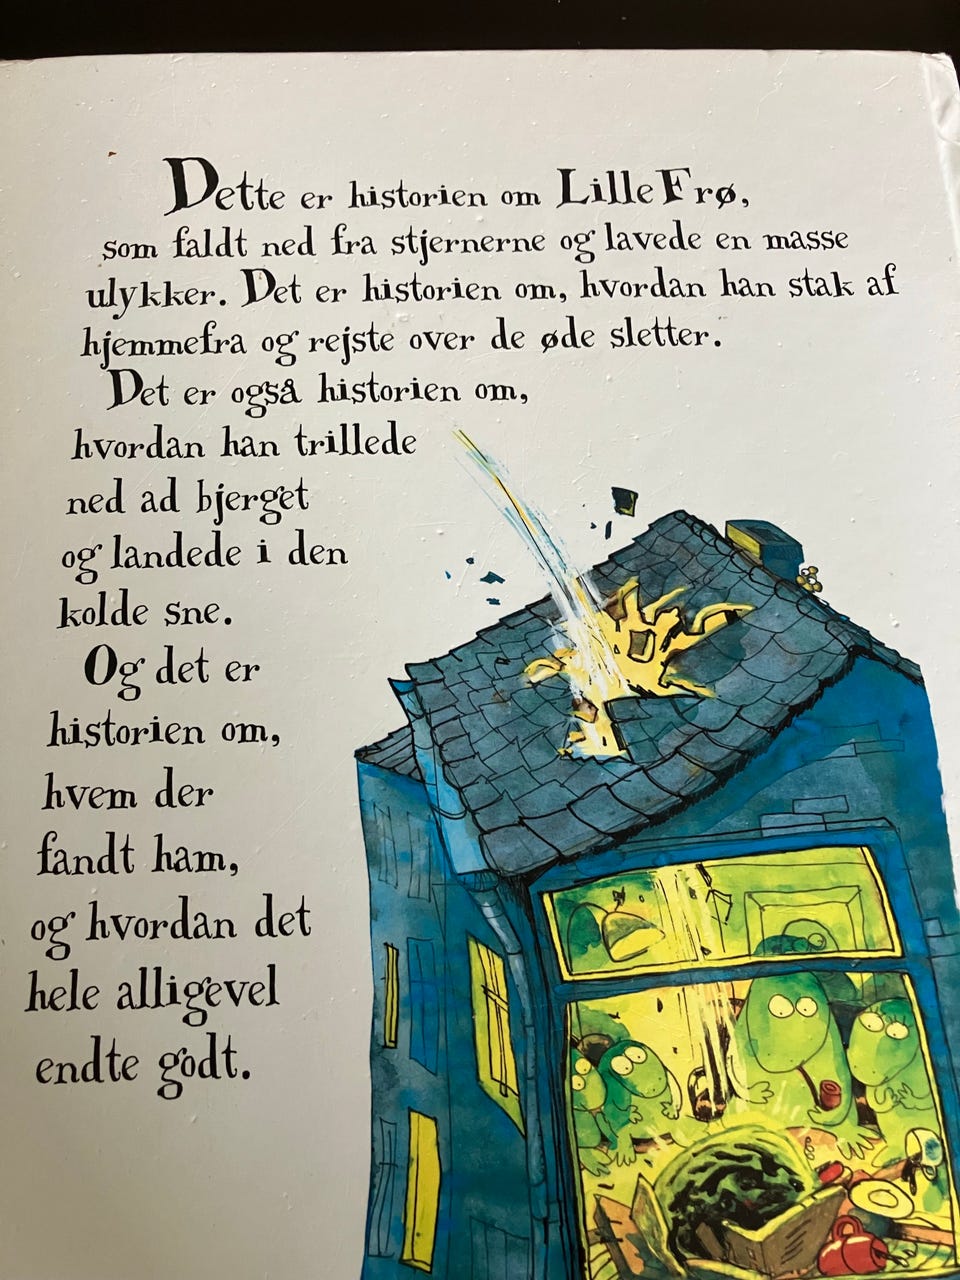 Dette er historien om Lille Frø,
som faldt ned fra stjernerne og lavede en masse
ulykker. Det er historien om, hvordan han stak af
hjemmefra og rejste over de øde sletter.
Det er også historien om,
hvordan han trillede
ned ad bjerget
og landede i den
kolde sne.
Og det er
historien om,
hvem der
fandt ham,
og hvordan det
hele alligevel
endte godt.